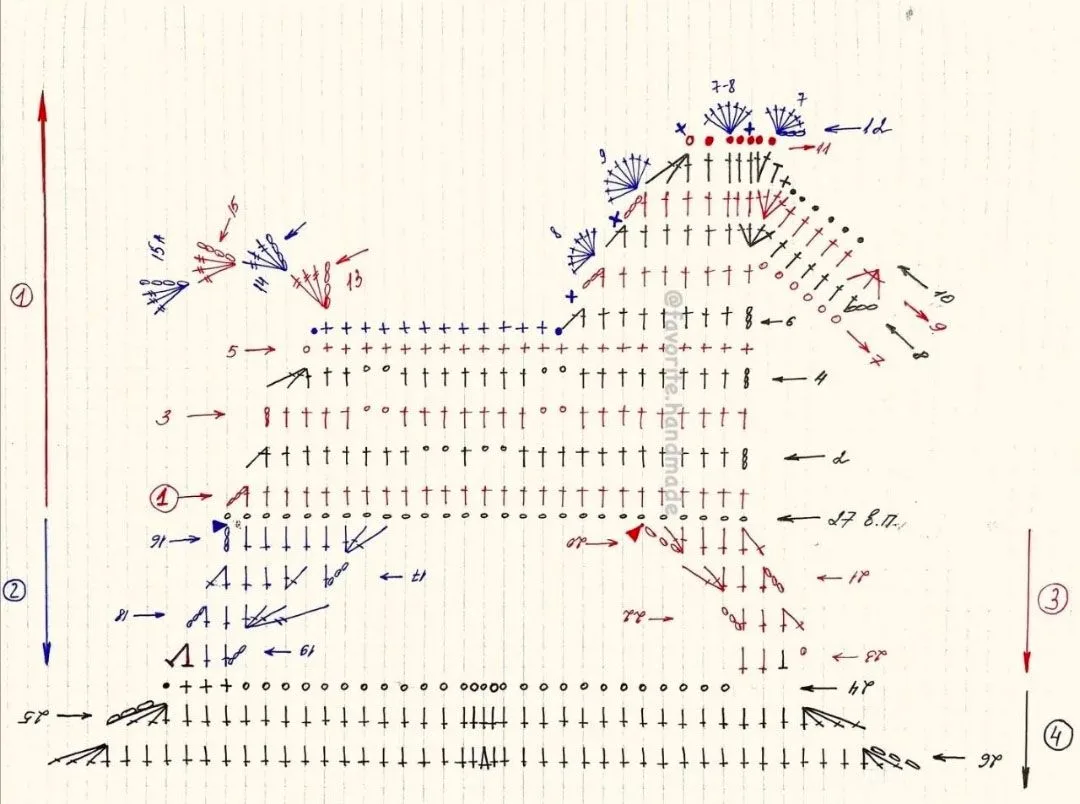 7-8
7
12
11
9
8
15А
14
13
10
9
8
7
①
6
5
4
3
2
①
27 в.п.
@favorite.handmade
16
20
②
17
21
③
18
22
19
23
24
25
④
26